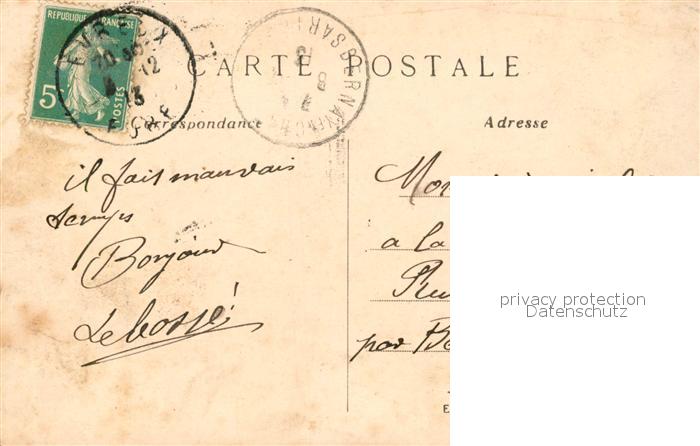 REPUBLIQUE FRANÇAISE
5c
POSTES
EVREUX
EURE
CARTE POSTALE
Correspondance
Adresse
il fait mauvais
temps
Bonjour
Lebossé
a la
par
privacy protection
Datenschutz